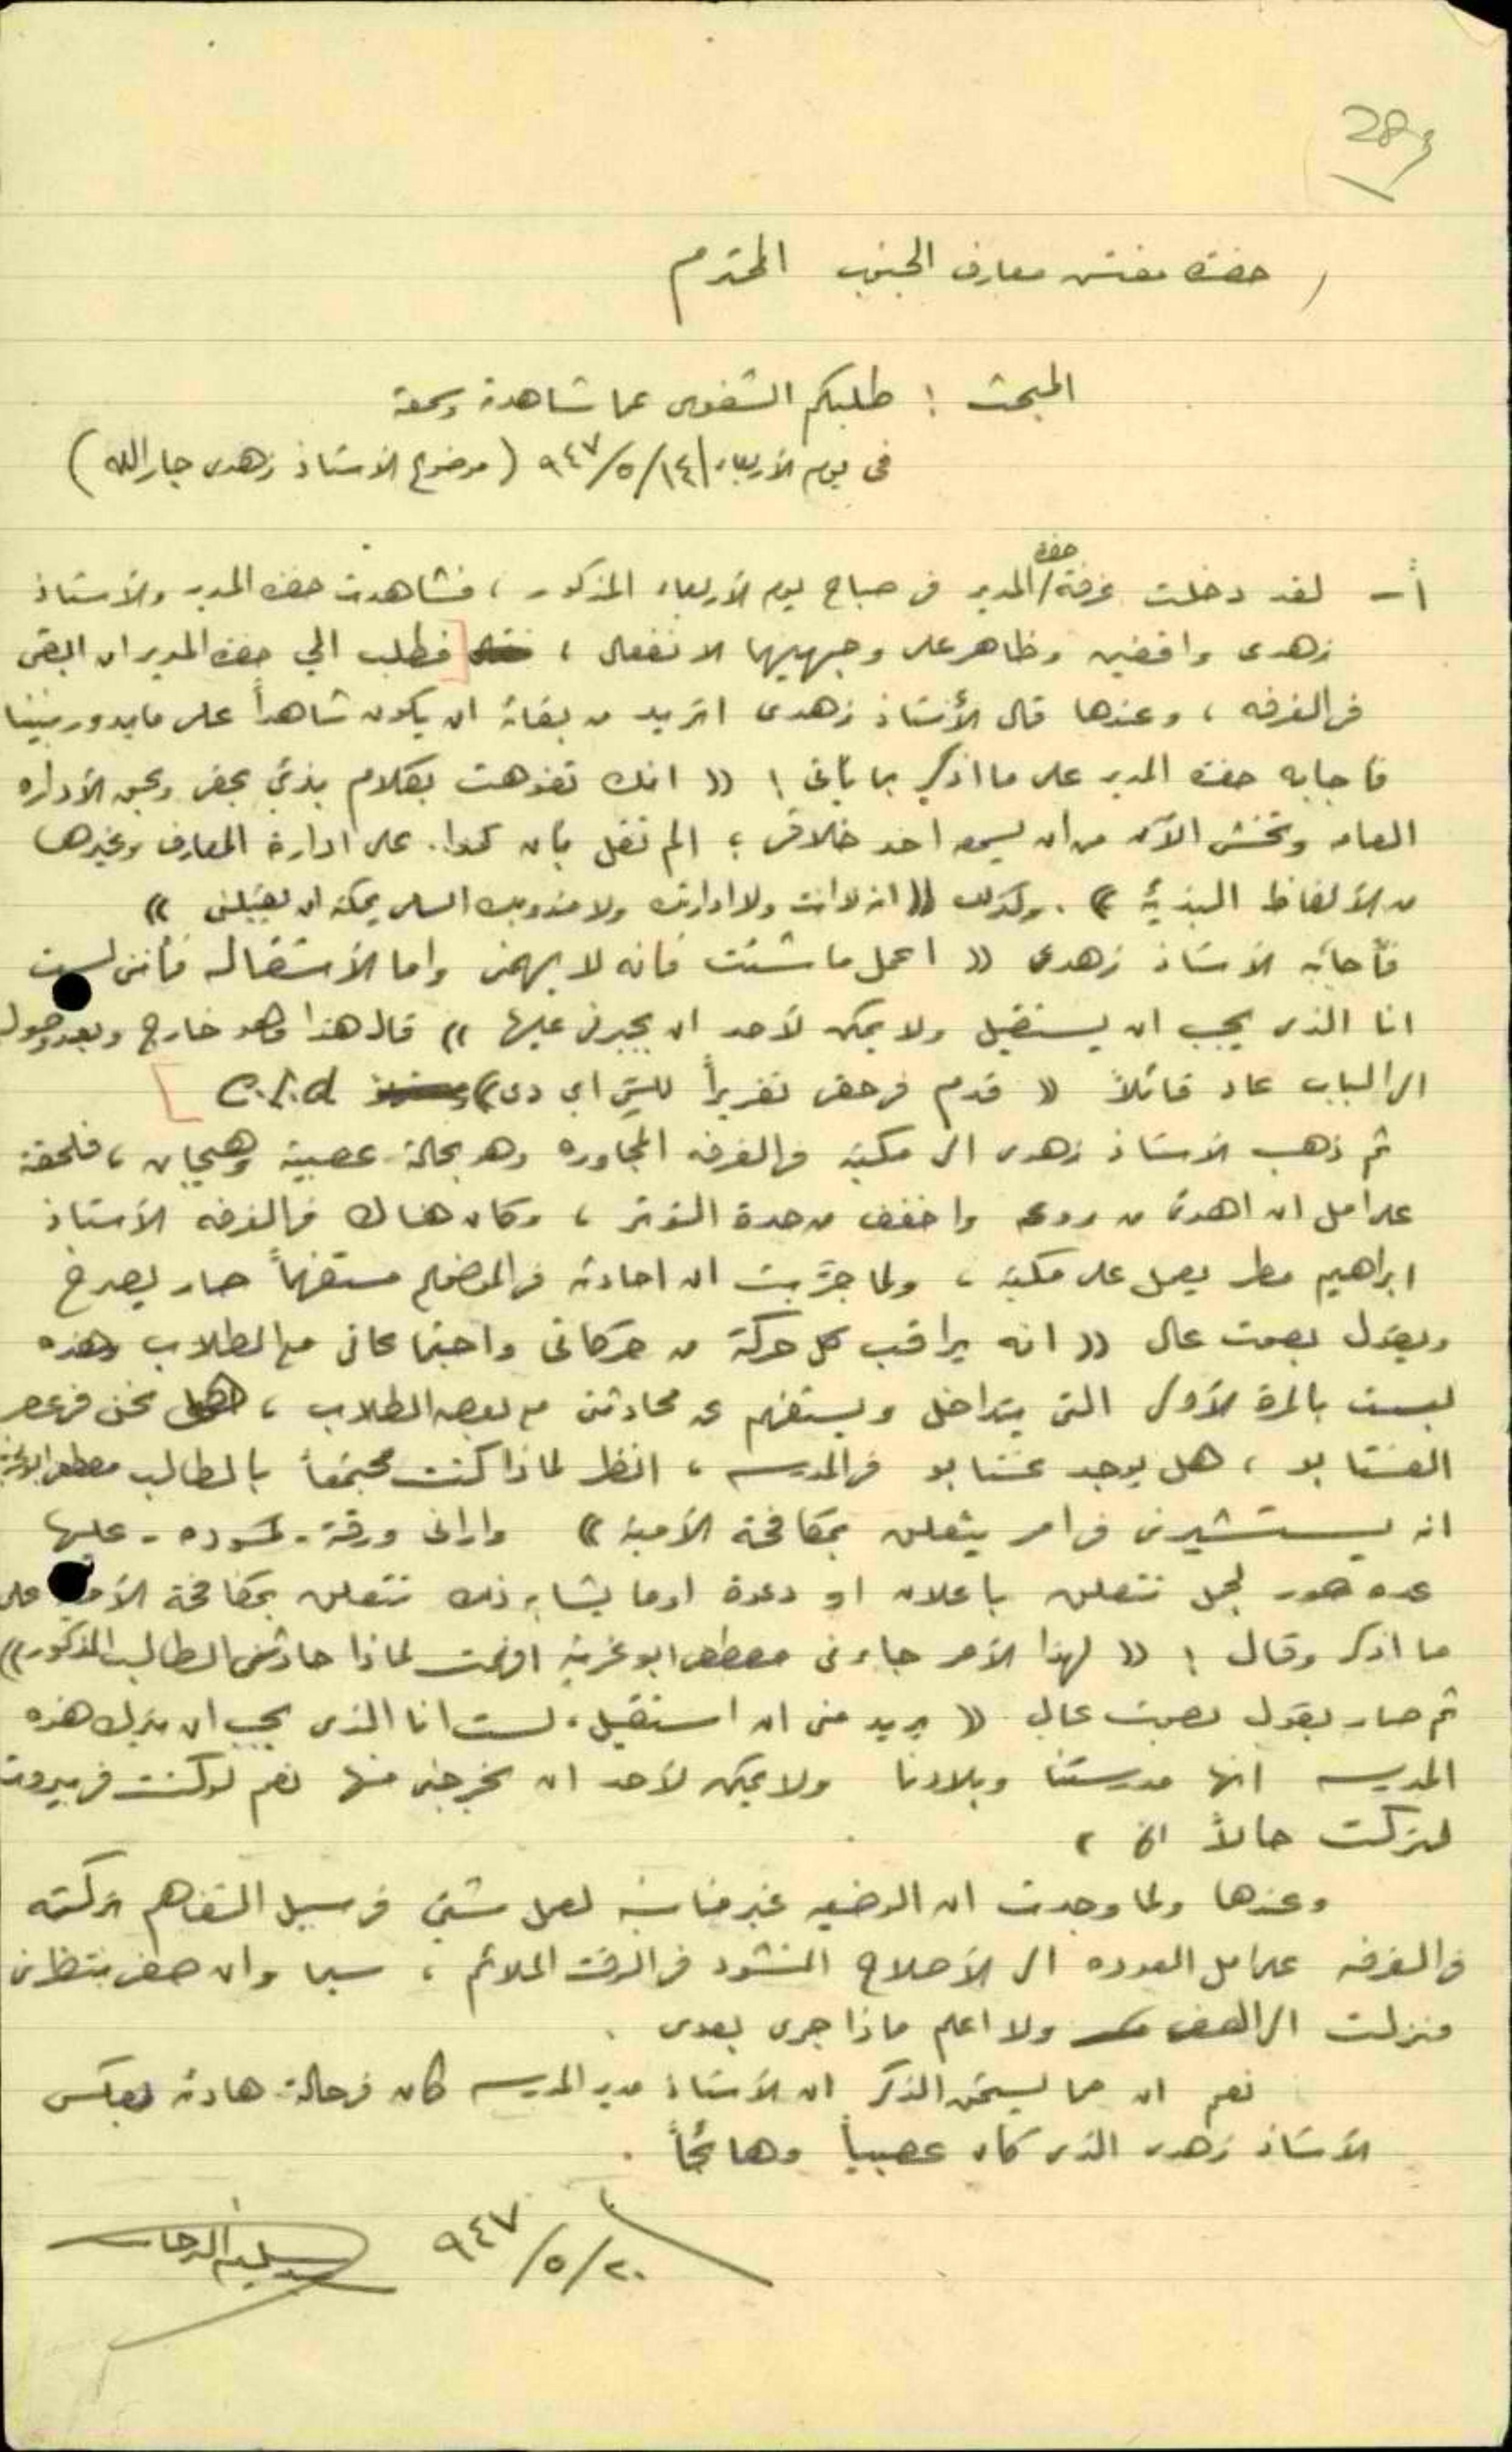 28
حضرة مفتش معارف الجنوب المحترم
المبحث : طلبكم الشفوي عما شاهدته وسمعته
في يوم الأربعاء ١٤/٥/٩٤٧ (موضوع الأستاذ زهدي جار الله)
أ - لقد دخلت غرفة حضرة المدير في صباح يوم الأربعاء المذكور ، فشاهدت حضرة المدير والأستاذ
زهدى واقفين وظاهر على وجهيهما الانفعال ، فطلب الي حضرة المدير ان ابقى
في الغرفه ، وعندها قال الأستاذ زهدى اتريد من بقائه ان يكون شاهداً على ما يدور بيننا
فاجابه حضرة المدير على ما اذكر بما يأتي : (( انك تفوهت بكلام بذئ بحقي وبحق الأداره
العامه وتخشى الآن من ان يسمع احد خلافي ؛ الم تقل بأن على ادارة المعارف وغيرها
من الألفاظ البذيئة )) . وكذلك (( انه لا انت ولا ادارتك ولا مندوبك السامي يمكنه ان يقيلني ))
فأجابه الأستاذ زهدى (( اعمل ما شئت فانه لا يهمني واما الأستقاله فأنني لست
انا الذى يجب ان يستقيل ولا يمكن لأحد ان يجبرني عليها )) قال هذا وهو خارج وبعد وصوله
الى الباب عاد قائلاً (( قدم في حقي تقريراً للسي اي دى )) C.I.d
ثم ذهب الأستاذ زهدى الى مكتبه في الغرفه المجاوره وهو بحالة عصبية وهيجان ، فلحقته
على امل ان اهدئ من روعه واخفف من حدة التوتر ، وكان هناك في الغرفه الأستاذ
ابراهيم مطر يعمل على مكتبه ، ولما جرّبت ان احادثه في الموضوع مستفهماً صار يصرخ
ويقول بصوت عال (( انه يراقب كل حركة من حركاتي واجتماعاتي مع الطلاب وهذه
ليست بالمرة الأولى التي يتداخل ويستفهم عن محادثتي مع بعض الطلاب ، هل نحن في عصر
الغستابو ، هل يوجد غستابو في المدرسه ، انظر لماذا كنت مجتمعاً بالطالب مصطفى ابو غربية
انه يستشيرني في امر يتعلق بمكافحة الأمية )) واراني ورقة - كمسوده - عليها
عدة صور لجمل تتعلق باعلان او دعوة او ما يشابه ذلك تتعلق بمكافحة الأمية على
ما اذكر وقال : (( لهذا الأمر جاءني مصطفى ابو غربية افهمت لماذا حادثني الطالب المذكور ))
ثم صار يقول بصوت عال (( يريد مني ان استقيل ، لست انا الذى يجب ان يترك هذه
المدرسه انها مدرستنا وبلادنا ولا يمكن لأحد ان يخرجني منها نعم لو كنت في بيروت
لتركت حالاً الخ ،
وعندها ولما وجدت ان الوضعيه غير مناسبة لعمل شئ في سبيل التفاهم تركته
في الغرفه على امل العودة الى الأصلاح المنشود في الوقت الملائم ، سيما وان صفي بنتظارى
فنزلت الى الصف ولا اعلم ماذا جرى بعدى .
نعم ان مما يستحق الذكر ان الأستاذ مدير المدرسه كان في حالة هادئه بعكس
الأستاذ زهدى الذى كان عصبياً وهائجاً .
٢٠/٥/٩٤٧